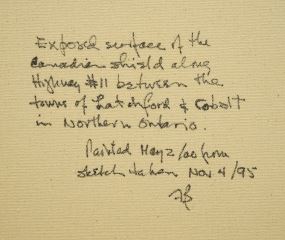 Exposed surface of the
Canadian shield along
Highway #11 between the
towns of Latchford & Cobolt
in Northern Ontario.
Painted May 2/00 from
sketch taken Nov 4/95